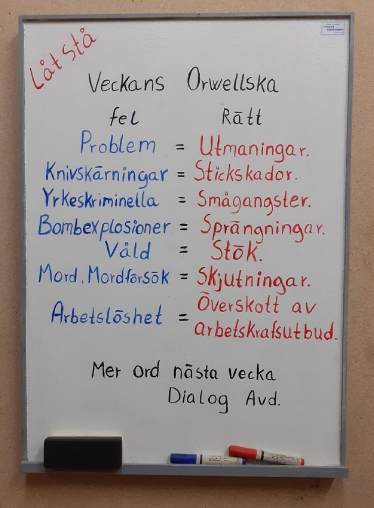 Låt stå
Veckans Orwellska
fel Rätt
Problem = Utmaningar.
Knivskärningar = Stickskador.
Yrkeskriminella = Smågangster.
Bombexplosioner = Sprängningar.
Våld = Stök.
Mord. Mordförsök = Skjutningar.
Arbetslöshet = Överskott av
arbetskrafsutbud.
Mer ord nästa vecka
Dialog Avd.